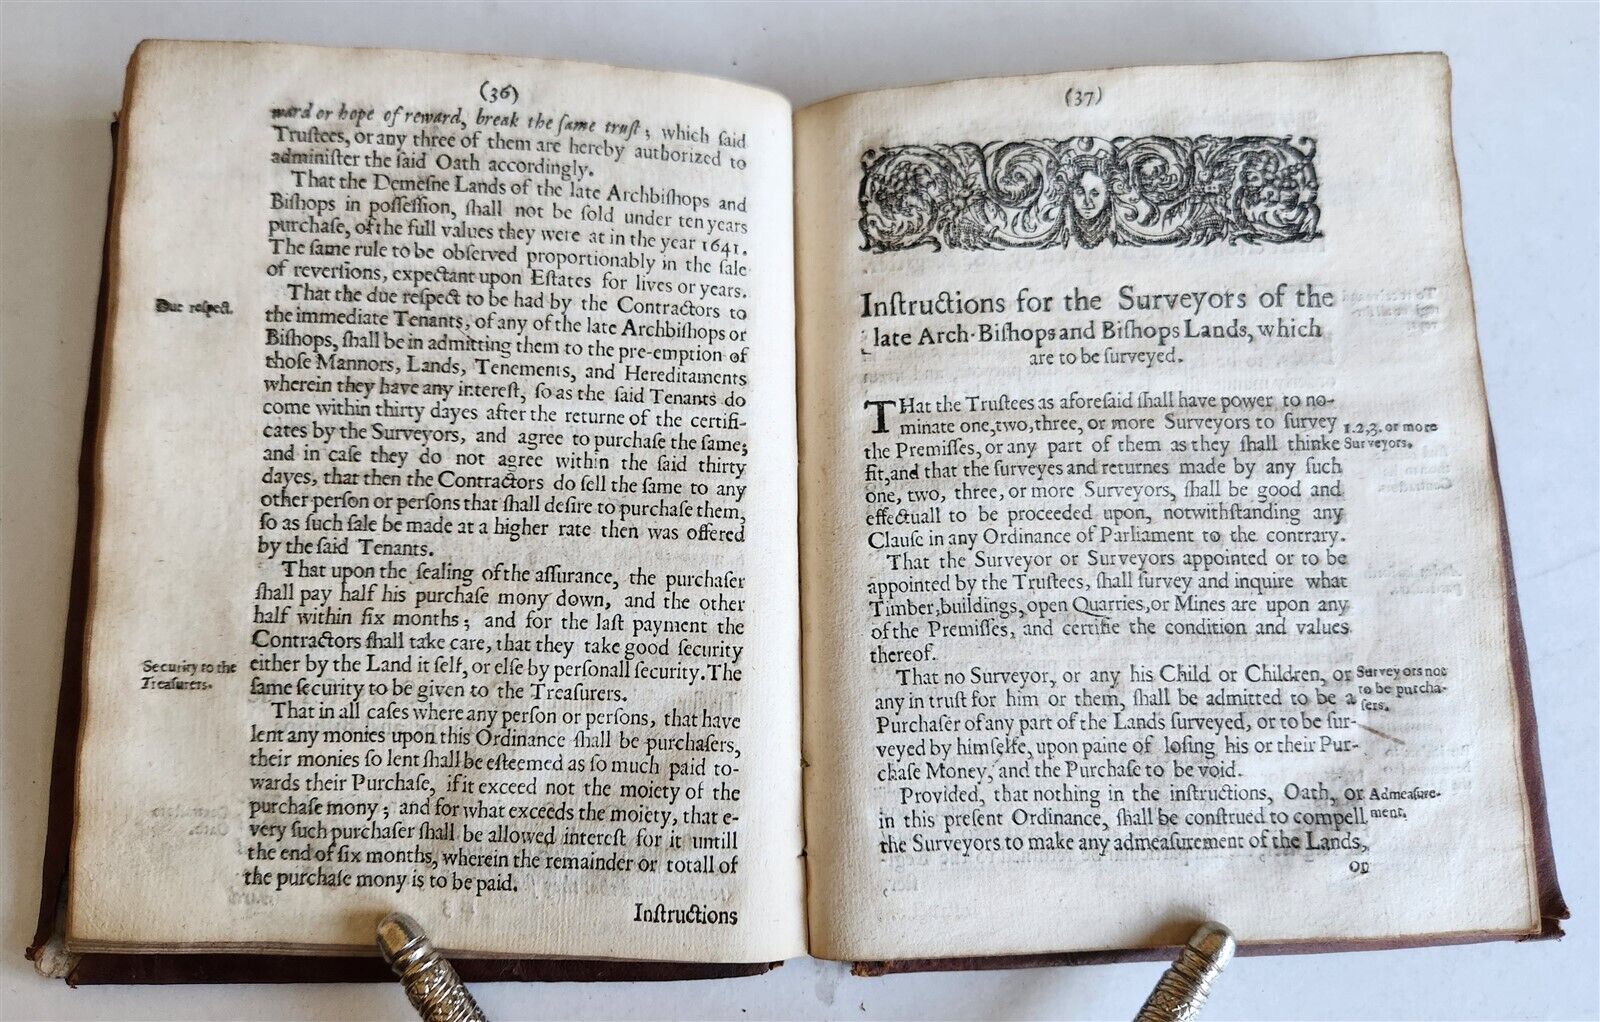 (36)
ward or hope of reward, break the ſame truſt; which ſaid
Truſtees, or any three of them are hereby authorized to
adminiſter the ſaid Oath accordingly.
That the Demeſne Lands of the late Archbiſhops and
Biſhops in poſſeſſion, ſhall not be ſold under ten years
purchaſe, of the full values they were at in the year 1641.
The ſame rule to be obſerved proportionably in the ſale
of reverſions, expectant upon Eſtates for lives or years.
Due reſpect.
That the due reſpect to be had by the Contractors to
the immediate Tenants, of any of the late Archbiſhops or
Biſhops, ſhall be in admitting them to the pre-emption of
thoſe Mannors, Lands, Tenements, and Hereditaments
wherein they have any intereſt, ſo as the ſaid Tenants do
come within thirty dayes after the returne of the certifi-
cates by the Surveyors, and agree to purchaſe the ſame;
and in caſe they do not agree within the ſaid thirty
dayes, that then the Contractors do ſell the ſame to any
other perſon or perſons that ſhall deſire to purchaſe them,
ſo as ſuch ſale be made at a higher rate then was offered
by the ſaid Tenants.
That upon the ſealing of the aſſurance, the purchaſer
ſhall pay half his purchaſe mony down, and the other
half within ſix months; and for the laſt payment the
Contractors ſhall take care, that they take good ſecurity
Security to the
Treaſurers.
either by the Land it ſelf, or elſe by perſonall ſecurity. The
ſame ſecurity to be given to the Treaſurers.
That in all caſes where any perſon or perſons, that have
lent any monies upon this Ordinance ſhall be purchaſers,
their monies ſo lent ſhall be eſteemed as ſo much paid to-
wards their Purchaſe, if it exceed not the moiety of the
purchaſe mony; and for what exceeds the moiety, that e-
very ſuch purchaſer ſhall be allowed intereſt for it untill
the end of ſix months, wherein the remainder or totall of
the purchaſe mony is to be paid.
Inſtructions
(37)
Inſtructions for the Surveyors of the
late Arch-Biſhops and Biſhops Lands, which
are to be ſurveyed.
THat the Truſtees as aforeſaid ſhall have power to no-
minate one, two, three, or more Surveyors to ſurvey
1.2,3. or more
Surveyors.
the Premiſſes, or any part of them as they ſhall thinke
fit, and that the ſurveyes and returnes made by any ſuch
one, two, three, or more Surveyors, ſhall be good and
effectuall to be proceeded upon, notwithſtanding any
Clauſe in any Ordinance of Parliament to the contrary.
That the Surveyor or Surveyors appointed or to be
appointed by the Truſtees, ſhall ſurvey and inquire what
Timber, buildings, open Quarries, or Mines are upon any
of the Premiſſes, and certifie the condition and values
thereof.
That no Surveyor, or any his Child or Children, or
Surveyors not
to be purcha-
ſers.
any in truſt for him or them, ſhall be admitted to be a
Purchaſer of any part of the Lands ſurveyed, or to be ſur-
veyed by himſelfe, upon paine of loſing his or their Pur-
chaſe Money, and the Purchaſe to be void.
Provided, that nothing in the inſtructions, Oath, or
Admeaſure-
ment.
in this preſent Ordinance, ſhall be conſtrued to compell
the Surveyors to make any admeaſurement of the Lands,
or